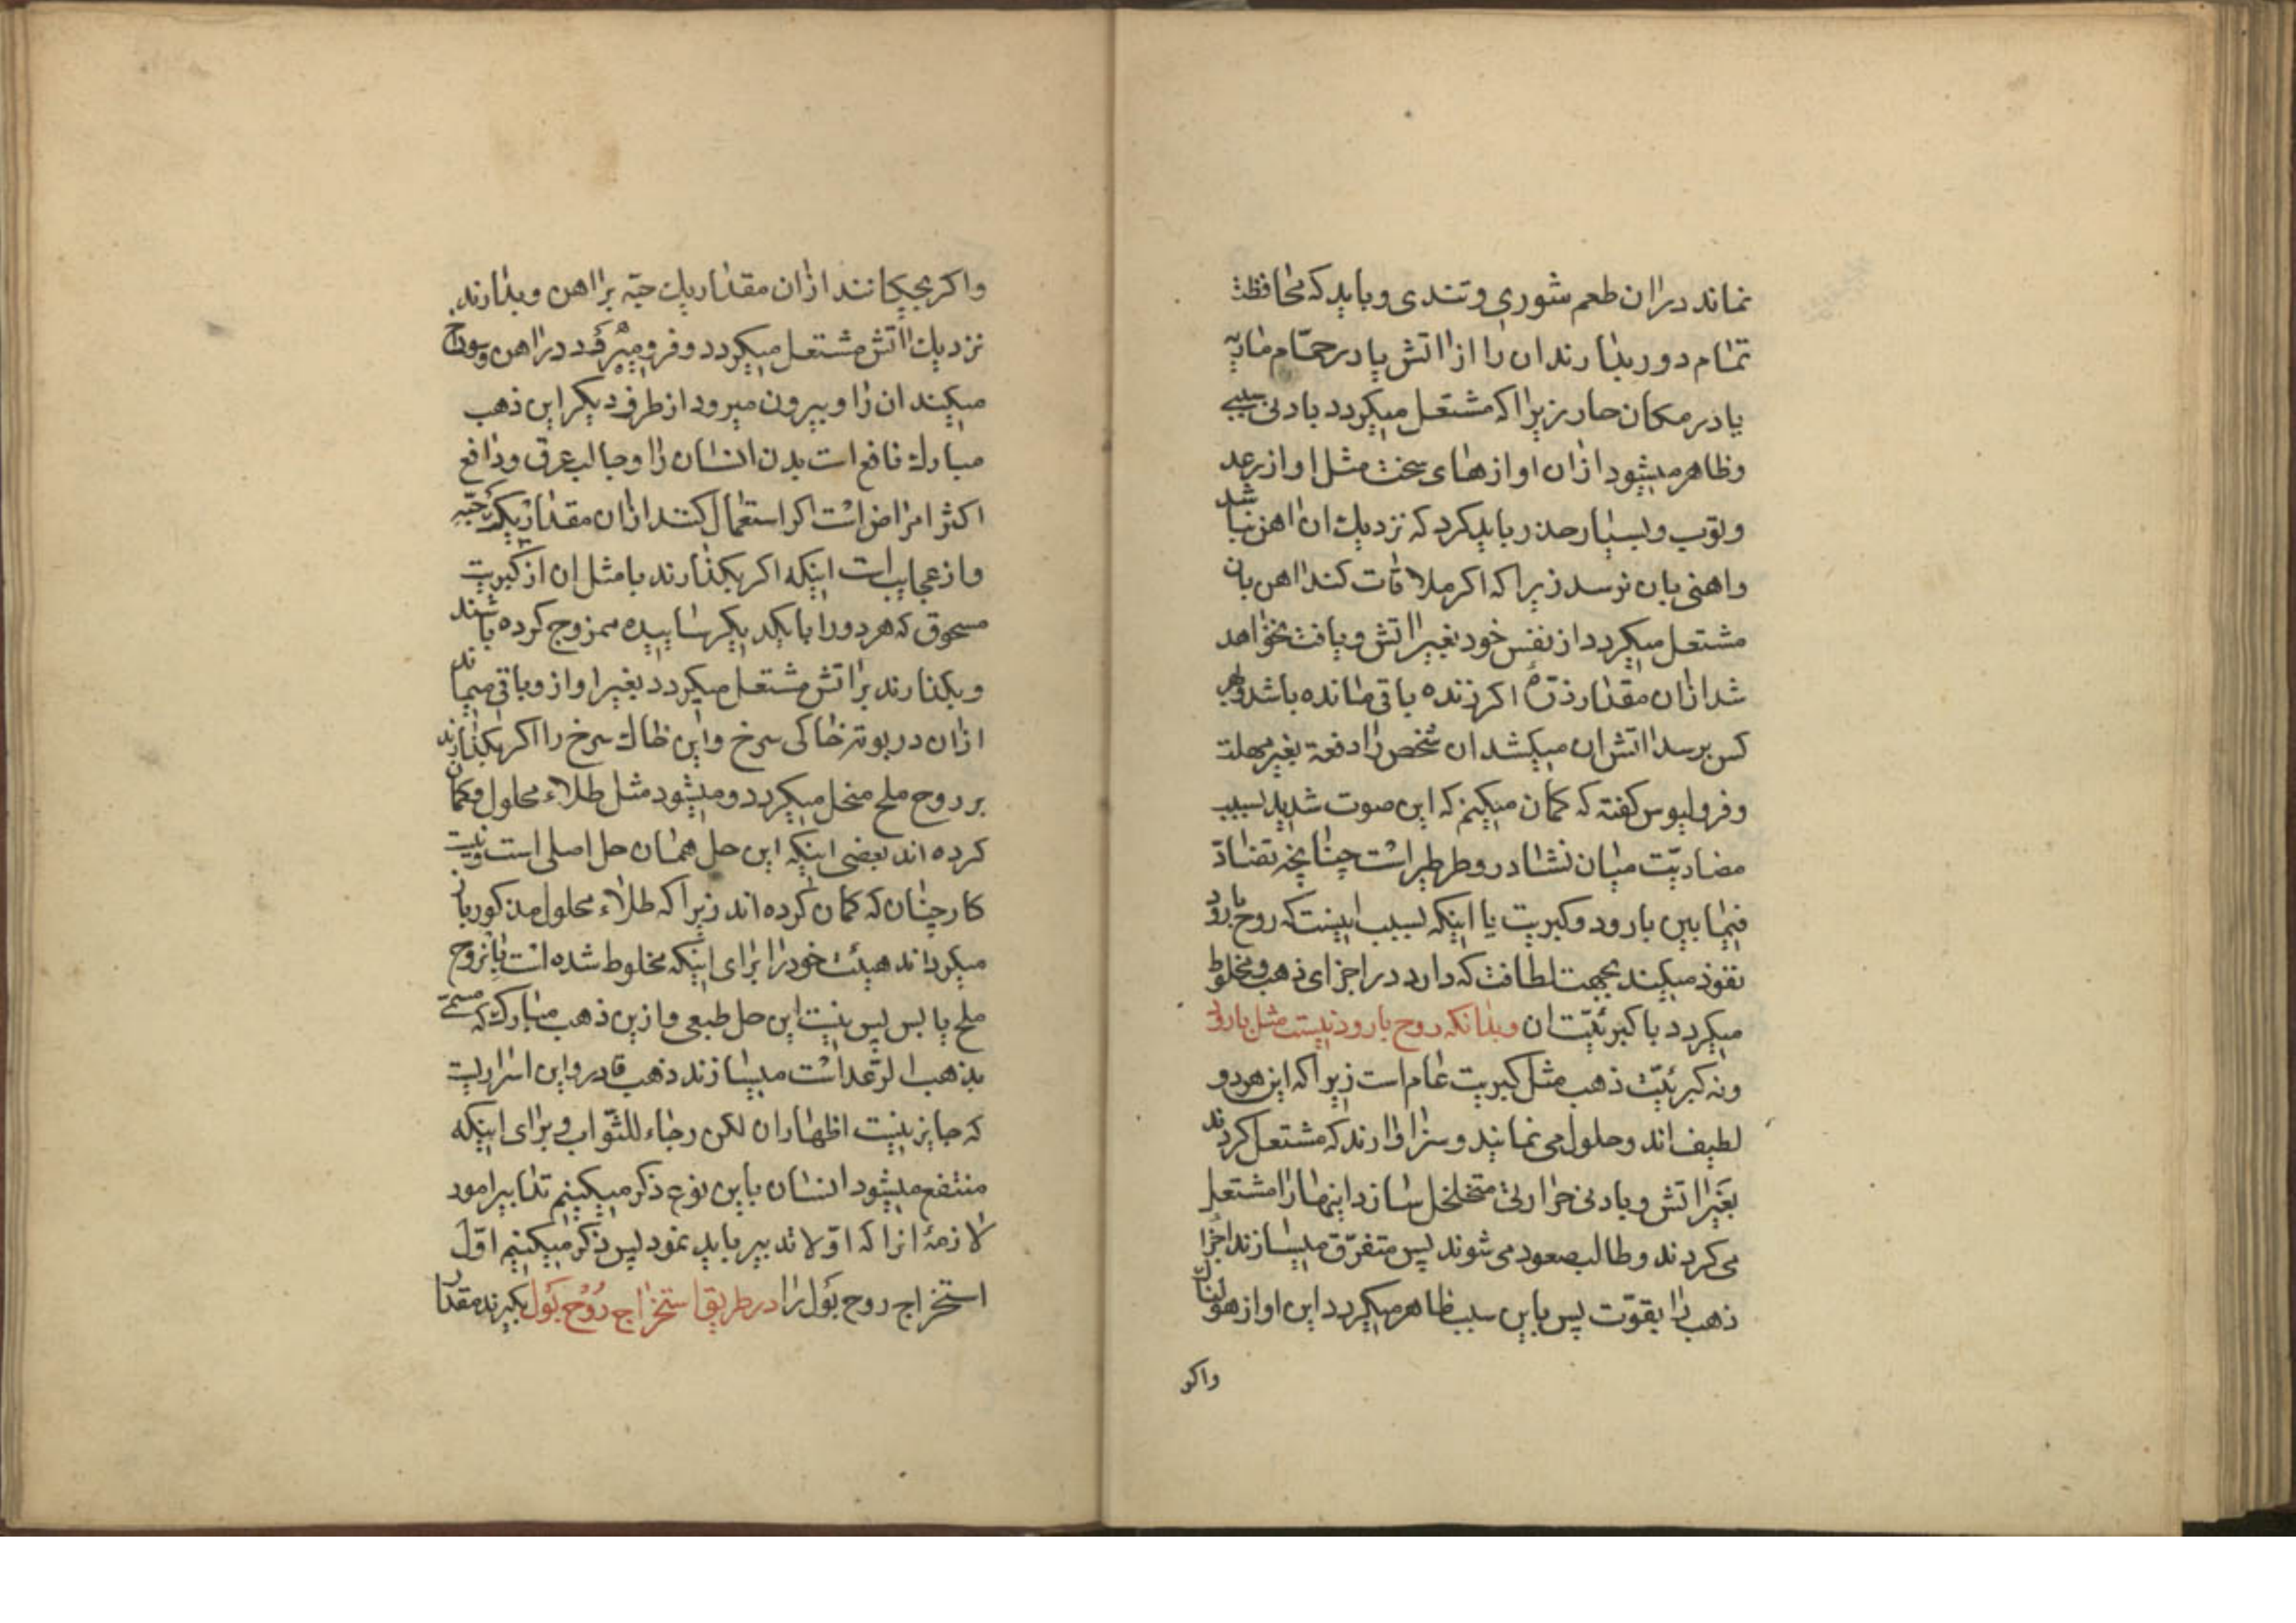 نماند در ان طعم شوری و تندی و باید که محافظت
تمام دور بدارند ان را از اتش یا در حمام ماریه
یا در مکان حار زیرا که مشتعل میکردد بادنی سببی
و ظاهر میشود ازان اوازهای سخت مثل اواز رعد
و توپ و بسیار حذر باید کرد که نزدیك ان اهن نباشد
و اهنی بان نرسد زیرا که اکر ملاقات کند اهن بان
مشتعل میکردد از نفس خود بغیر اتش و یافت نخواهد
شد ازان مقدار ذرهٔ اکر زنده باقی مانده باشد و بهر
کس برسد اتش ان میکشد ان شخص را دفعة بغیر مهلت
و فرولیوس کفته که کمان میکنم که این صوت شدید بسبب
مضادیّت میان نشادر و طرطیر است چنانچه تضادّ
فیما بین بارود و کبریت یا اینکه بسبب اینست که روح بارود
نفوذ میکند بجهت لطافت که دارد در اجزای ذهب و مخلوط
میکردد با کبرئیّت ان و بدانکه روح بارود نیست مثل بارود
و نه کبرئیّت ذهب مثل کبریت عام است زیرا که این هر دو
لطیف اند و حلول می نمایند و سزاوارند که مشتعل کردند
بغیر اتش و بادنی حرارتی متخلخل سازد اینها را مشتعل
می کردند و طالب صعود می شوند پس متفرّق میسازند اجزا
ذهب را بقوّت پس باین سبب ظاهر میکردد این اواز هولناك
واکر
واکر بچکانند ازان مقدار یك حبّه بر اهن و بدارند
نزدیك اتش مشتعل میکردد و فرو میرود در اهن و سوراخ
میکند ان را و بیرون میرود از طرف دیکر این ذهب
مبارك نافع است بدن انسان را و جالب عرق و دافع
اکثر امراض است اکر استعمال کنند ازان مقدار یك حبّه
و از عجایب است اینکه اکر بکذارند با مثل ان از کبریت
مسحوق که هر دو را با یکدیکر سابیده ممزوج کرده باشند
و بکذارند بر اتش مشتعل میکردد بغیر اواز و باقی میماند
ازان در بوته خاکی سرخ و این خاك سرخ را اکر بکذارند
بر روح ملح منحل میکردد و میشود مثل طلاء محلول و کمان
کرده اند بعضی اینکه این حل همان حل اصلی است و نیست
کار چنان که کمان کرده اند زیرا که طلاء محلول مذکور باز
میکرداند هیئت خود را برای اینکه مخلوط شده است با روح
ملح یابس پس نیست این حل طبعی و ازین ذهب مبارك که مسمّی
بذهب الرّعد است میسازند ذهب قادر و این اسراریست
که جایز نیست اظهار ان لکن رجاء للثّواب و برای اینکه
منتفع میشود انسان باین نوع ذکر میکنیم تدابیر امور
لازمهٔ انرا که اوّلا تدبیر باید نمود پس ذکر میکنیم اوّل
استخراج روح بول را در طریق استخراج روح بول بکیرند مقدار